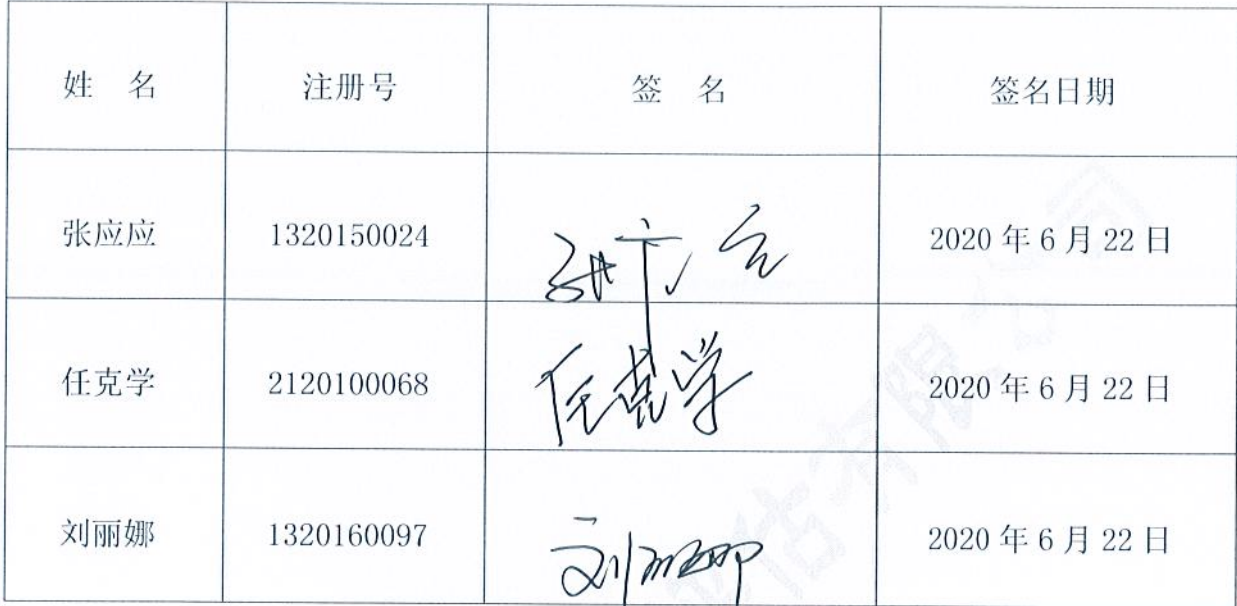 姓 名 注册号 签 名 签名日期
张应应 1320150024 2020 年 6 月 22 日
任克学 2120100068 任克学 2020 年 6 月 22 日
刘丽娜 1320160097 刘丽娜 2020 年 6 月 22 日
估有限公司